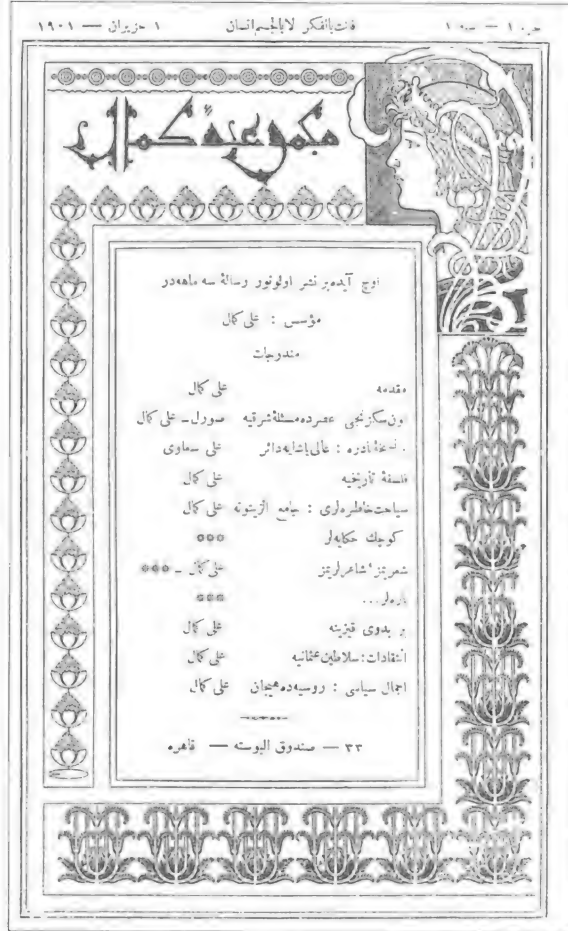 جزء ١ — سنه ١ فانت بالفكر لا بالجسم انسان ١ حزيران — ١٩٠١
مجموعهٔ كمال
اوچ آيده بر نشر اولونور رسالهٔ سه ماهه در
مؤسس : على كمال
مندرجات
مقدمه على كمال
اون سكزنجى عصرده مسئلهٔ شرقيه صورل ـ على كمال
نسخهٔ نادره : عالى پاشايه دائر على سعاوى
فلسفهٔ تاريخيه على كمال
سياحت خاطره لرى : جامع الزيتونه على كمال
كوچك حكايه لر ***
شعريمز ، شاعرلريمز على كمال ـ ***
پاره لر... ***
بر بدوى قيزينه على كمال
انتقادات : سلاطين عثمانيه على كمال
اجمال سياسى : روسيه ده هيجان على كمال
٣٣ — صندوق البوسته — قاهره